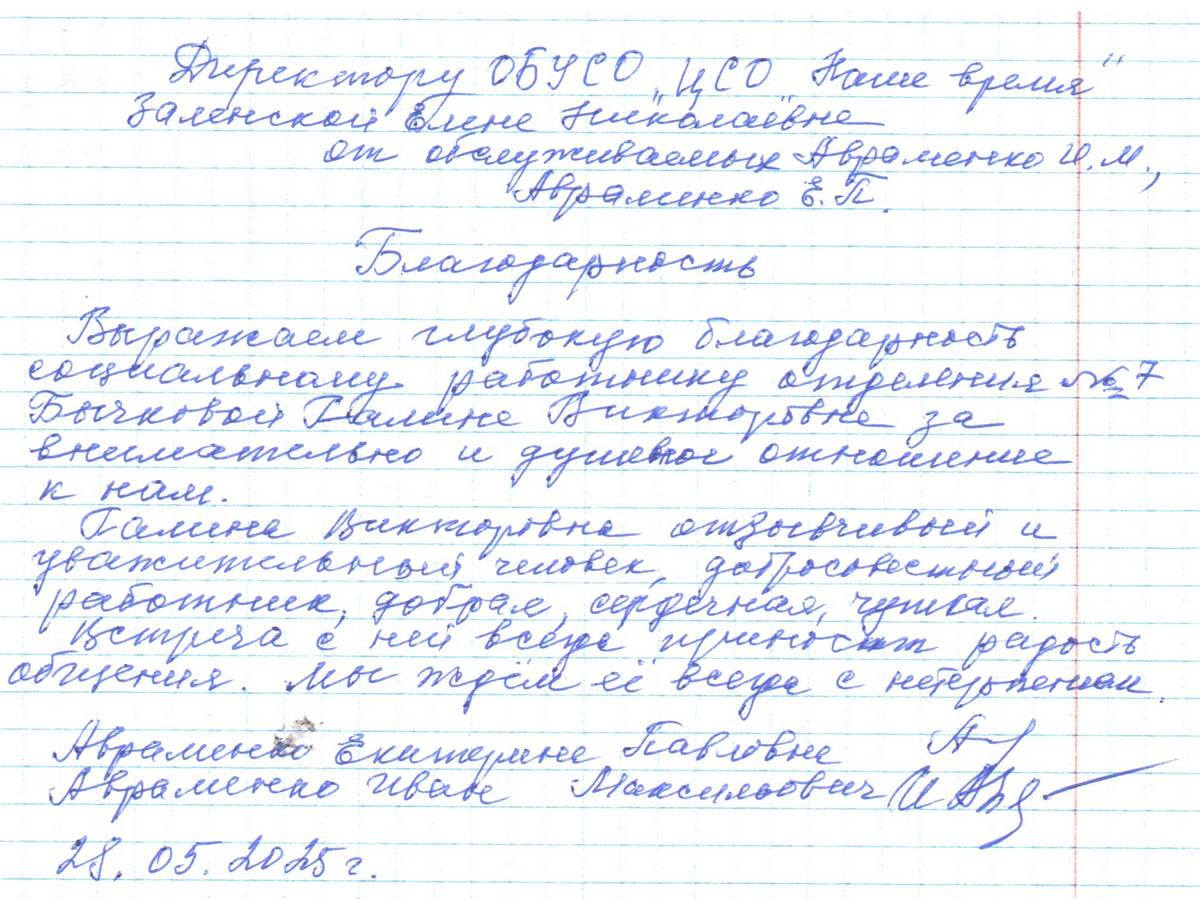 Директору ОБУСО „ЦСО „Наше время"
Заленской Елене Николаевне
от обслуживаемых Авраменко И.М.,
Авраменко Е.П.
Благодарность
Выражаем глубокую благодарность
социальному работнику отделения № 7
Бычковой Галине Викторовне за
внимательно и душевное отношение
к нам.
Галина Викторовна отзывчивый и
уважительный человек, добросовестный
работник, добрая, сердечная, чуткая.
Встреча с ней всегда приносит радость
общения. Мы ждём её всегда с нетерпением.
Авраменко Екатерина Павловна
Авраменко Иван Максимович
28.05.2025 г.